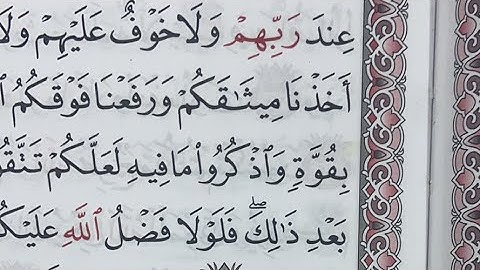 عِندَ رَبِّهِمْ وَلَا خَوْفٌ عَلَيْهِمْ وَلَا
أَخَذْنَا مِيثَٰقَكُمْ وَرَفَعْنَا فَوْقَكُمُ
بِقُوَّةٍ وَٱذْكُرُوا۟ مَا فِيهِ لَعَلَّكُمْ
بَعْدِ ذَٰلِكَ ۖ فَلَوْلَا فَضْلُ ٱللَّهِ